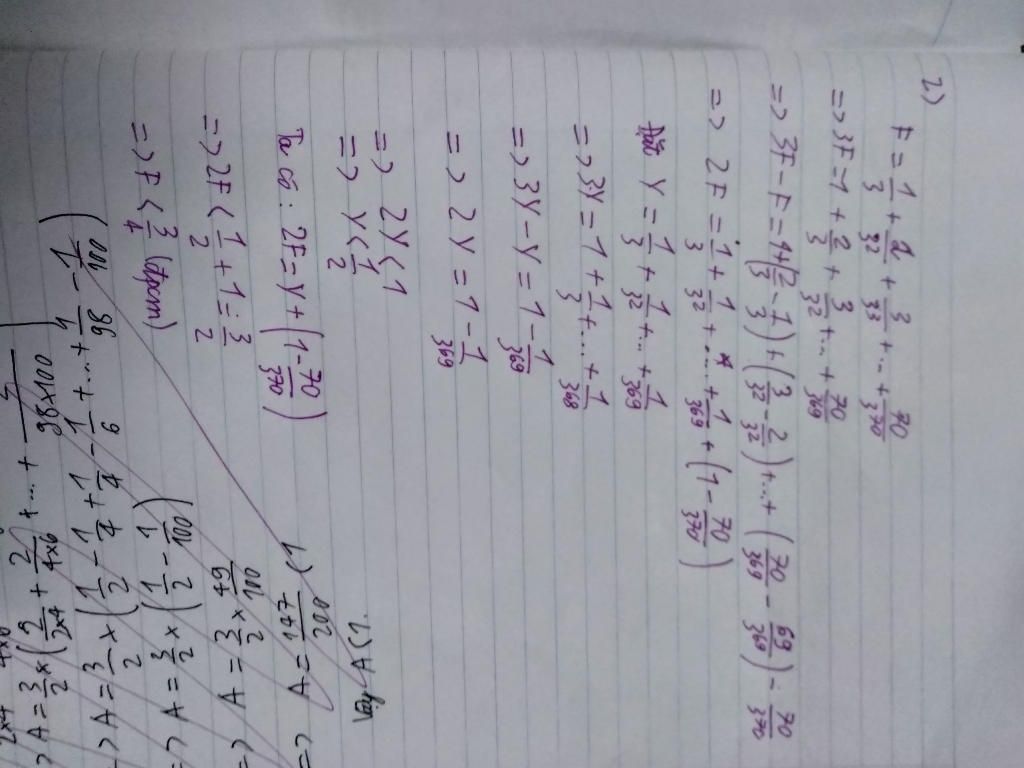 2)
F = 1/3 + 2/3² + 3/3³ + ... + 70/3⁷⁰
=> 3F = 1 + 2/3 + 3/3² + ... + 70/3⁶⁹
=> 3F - F = 1 + (2/3 - 1/3) + (3/3² - 2/3²) + ... + (70/3⁶⁹ - 69/3⁶⁹) - 70/3⁷⁰
=> 2F = 1/3 + 1/3² + ... + 1/3⁶⁹ + (1 - 70/3⁷⁰)
Đặt Y = 1/3 + 1/3² + ... + 1/3⁶⁹
=> 3Y = 1 + 1/3 + ... + 1/3⁶⁸
=> 3Y - Y = 1 - 1/3⁶⁹
=> 2Y = 1 - 1/3⁶⁹
=> 2Y < 1
=> Y < 1/2
Ta có : 2F = Y + (1 - 70/3⁷⁰)
=> 2F < 1/2 + 1 = 3/2
=> F < 3/4 (đpcm)
=> A = 3/2 x (2/2x4 + 2/4x6 + ... + 2/98x100)
=> A = 3/2 x (1/2 - 1/4 + 1/4 - 1/6 + ... + 1/98 - 1/100)
=> A = 3/2 x (1/2 - 1/100)
=> A = 3/2 x 49/100
=> A = 147/200 < 1
Vậy A < 1.